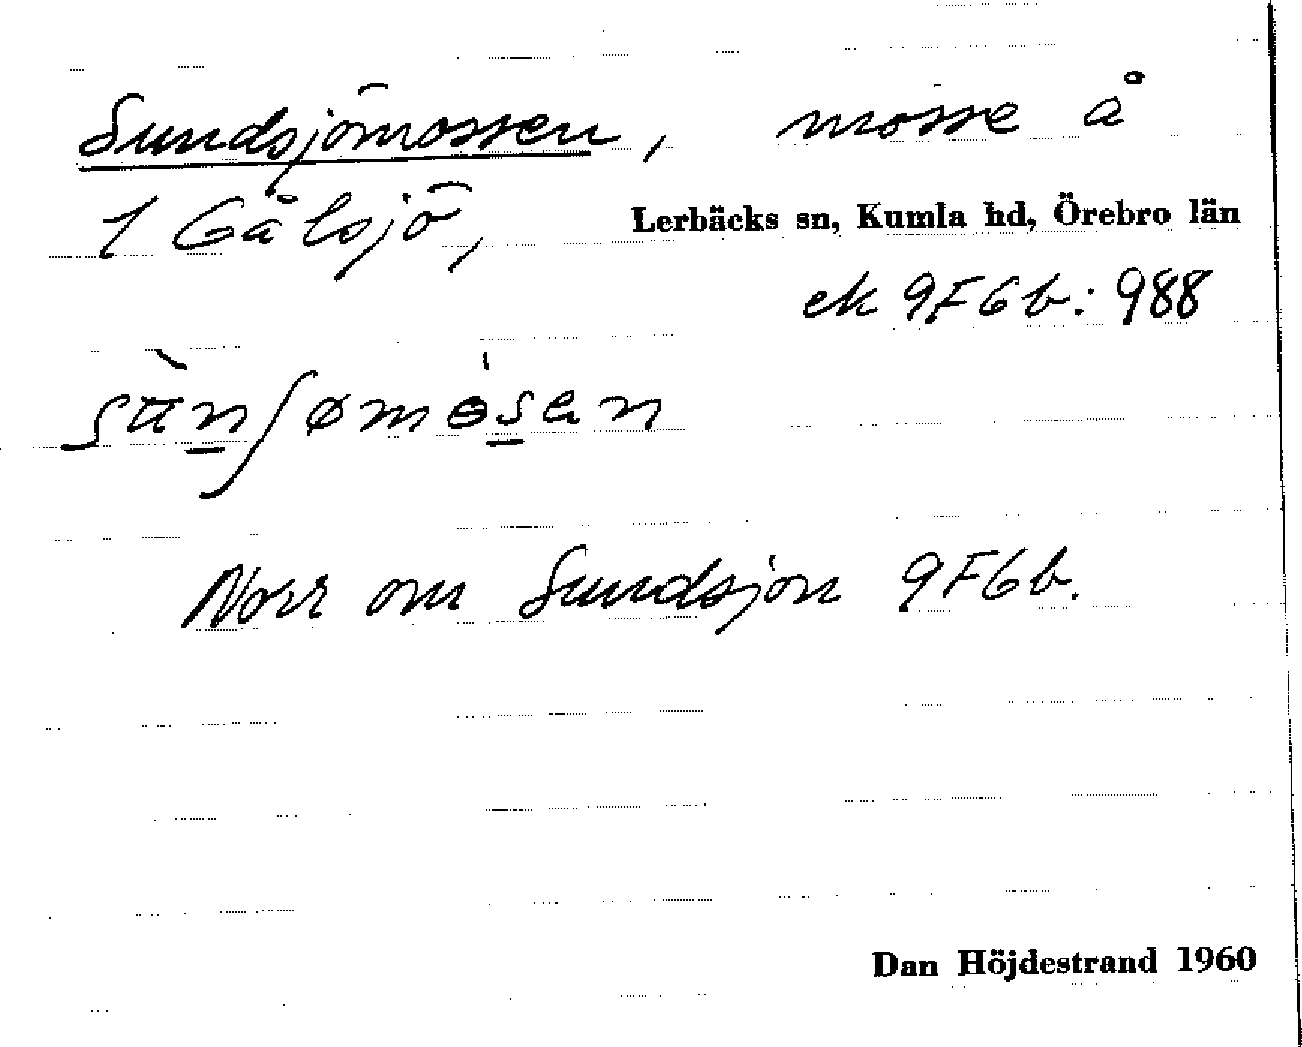 Sundsjömossen, mosse å
1 Gålsjö, Lerbäcks sn, Kumla hd, Örebro län
ek 9F6b: 988
Norr om Sundsjön 9F6b.
Dan Höjdestrand 1960